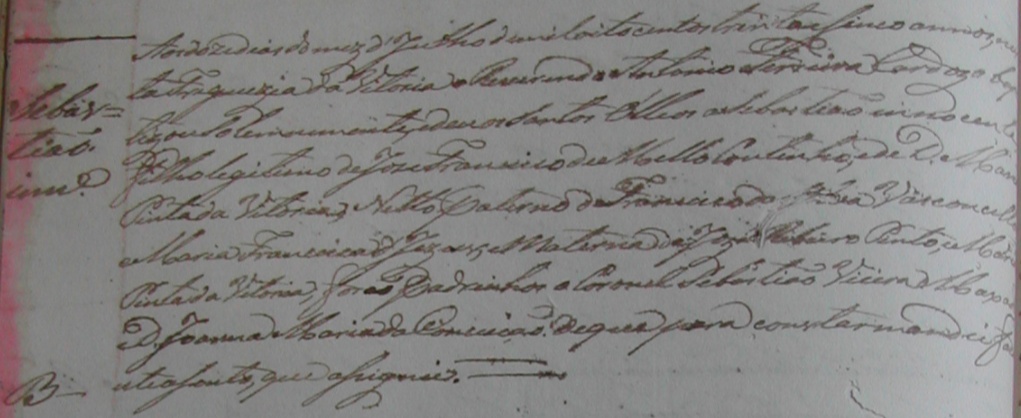 Aos doze dias do mez d'Julho d'mil oito centos trinta e sinco annos, n
ta Freguezia da Vitoria o Reverendo Antonio Ferreira Cardozo bap
Sebas=
tizou Solemnemente, e deu os Santos Olleos a Sebastiaõ innocen
tiaõ
Filho legitimo de Joze Francisco de Mello Coutinho, e de D. Ma
inn.e
Pinta da Vitoria, Netto Paterno de Francisco da Vasconcell
Maria Francisca d'Jezus, e Materna de Joze Ribeiro Pinto, e Ma
Pinta da Vitoria, foraõ Padrinhos o Coronel Sebastiaõ Vieira d
D. Joanna Maria da Conceiçaõ. De que para constar mandei fa
B
este asento, que asignei.